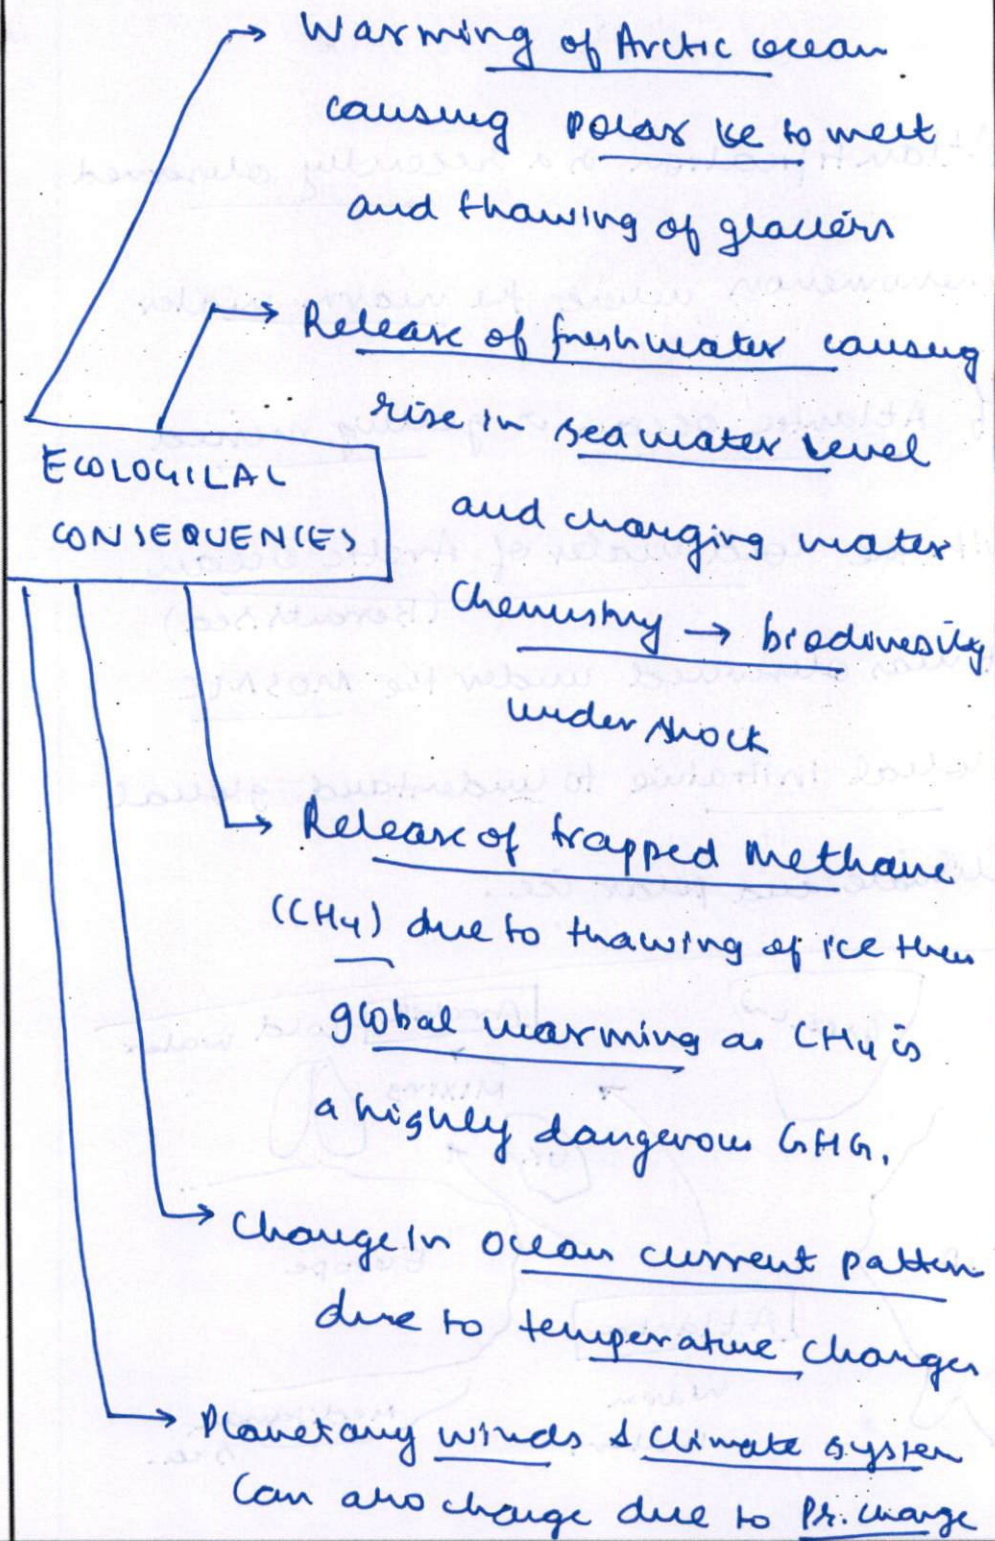 Warming of Arctic ocean
causing polar ice to melt
and thawing of glaciers
Release of freshwater causing
rise in sea water level
and changing water
chemistry → biodiversity
under shock
ECOLOGICAL
CONSEQUENCES
Release of trapped Methane
(CH4) due to thawing of ice then
global warming as CH4 is
a highly dangerous GHG.
Change in ocean current pattern
due to temperature changes
Planetary winds & climate system
can also change due to Pr. change